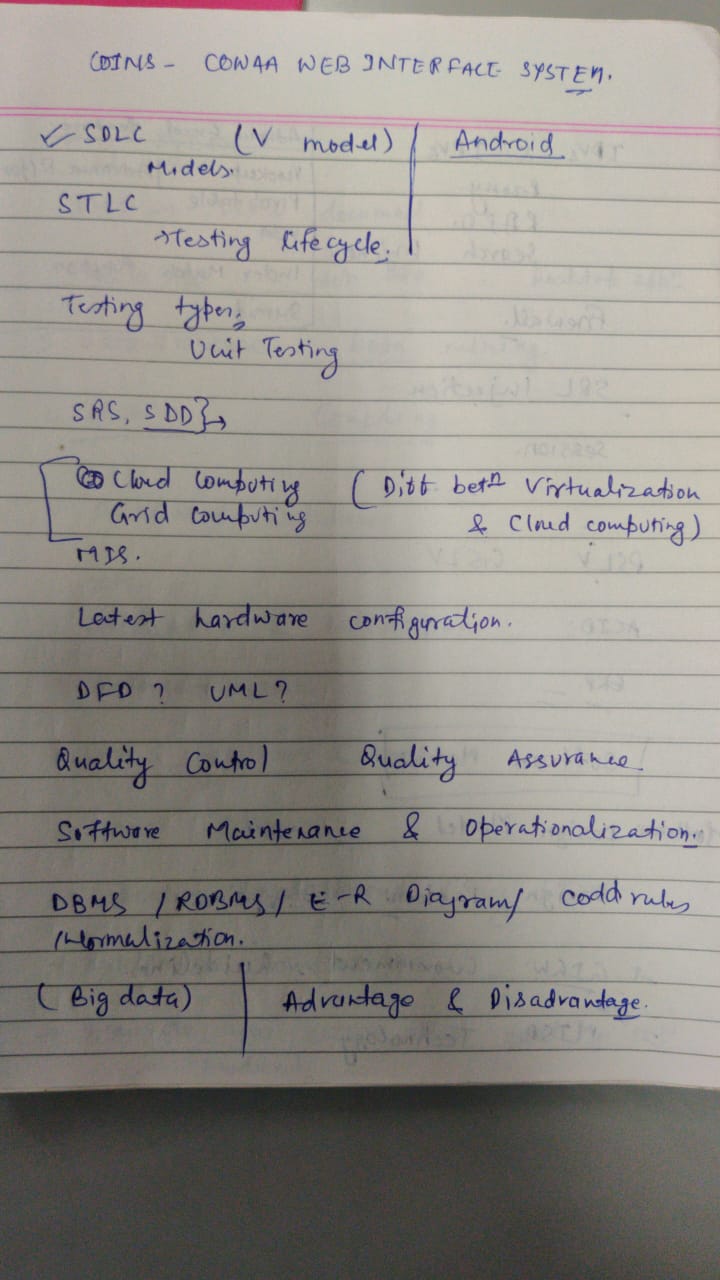 COINS - CONAA WEB INTERFACE SYSTEM.
✓ SDLC (V model) | Android
Models.
STLC
→Testing Lifecycle.
Testing types;
Unit Testing
SRS, SDD}→
Cloud Computing ( Diff. betn Virtualization
Grid Computing & Cloud computing)
MIS.
Latest hardware configuration.
DFD ? UML ?
Quality Control Quality Assurance
Software Maintenance & Operationalization.
DBMS / RDBMS / E-R Diagram/ Codd rules
/Normalization.
( Big data) | Advantage & Disadvantage.